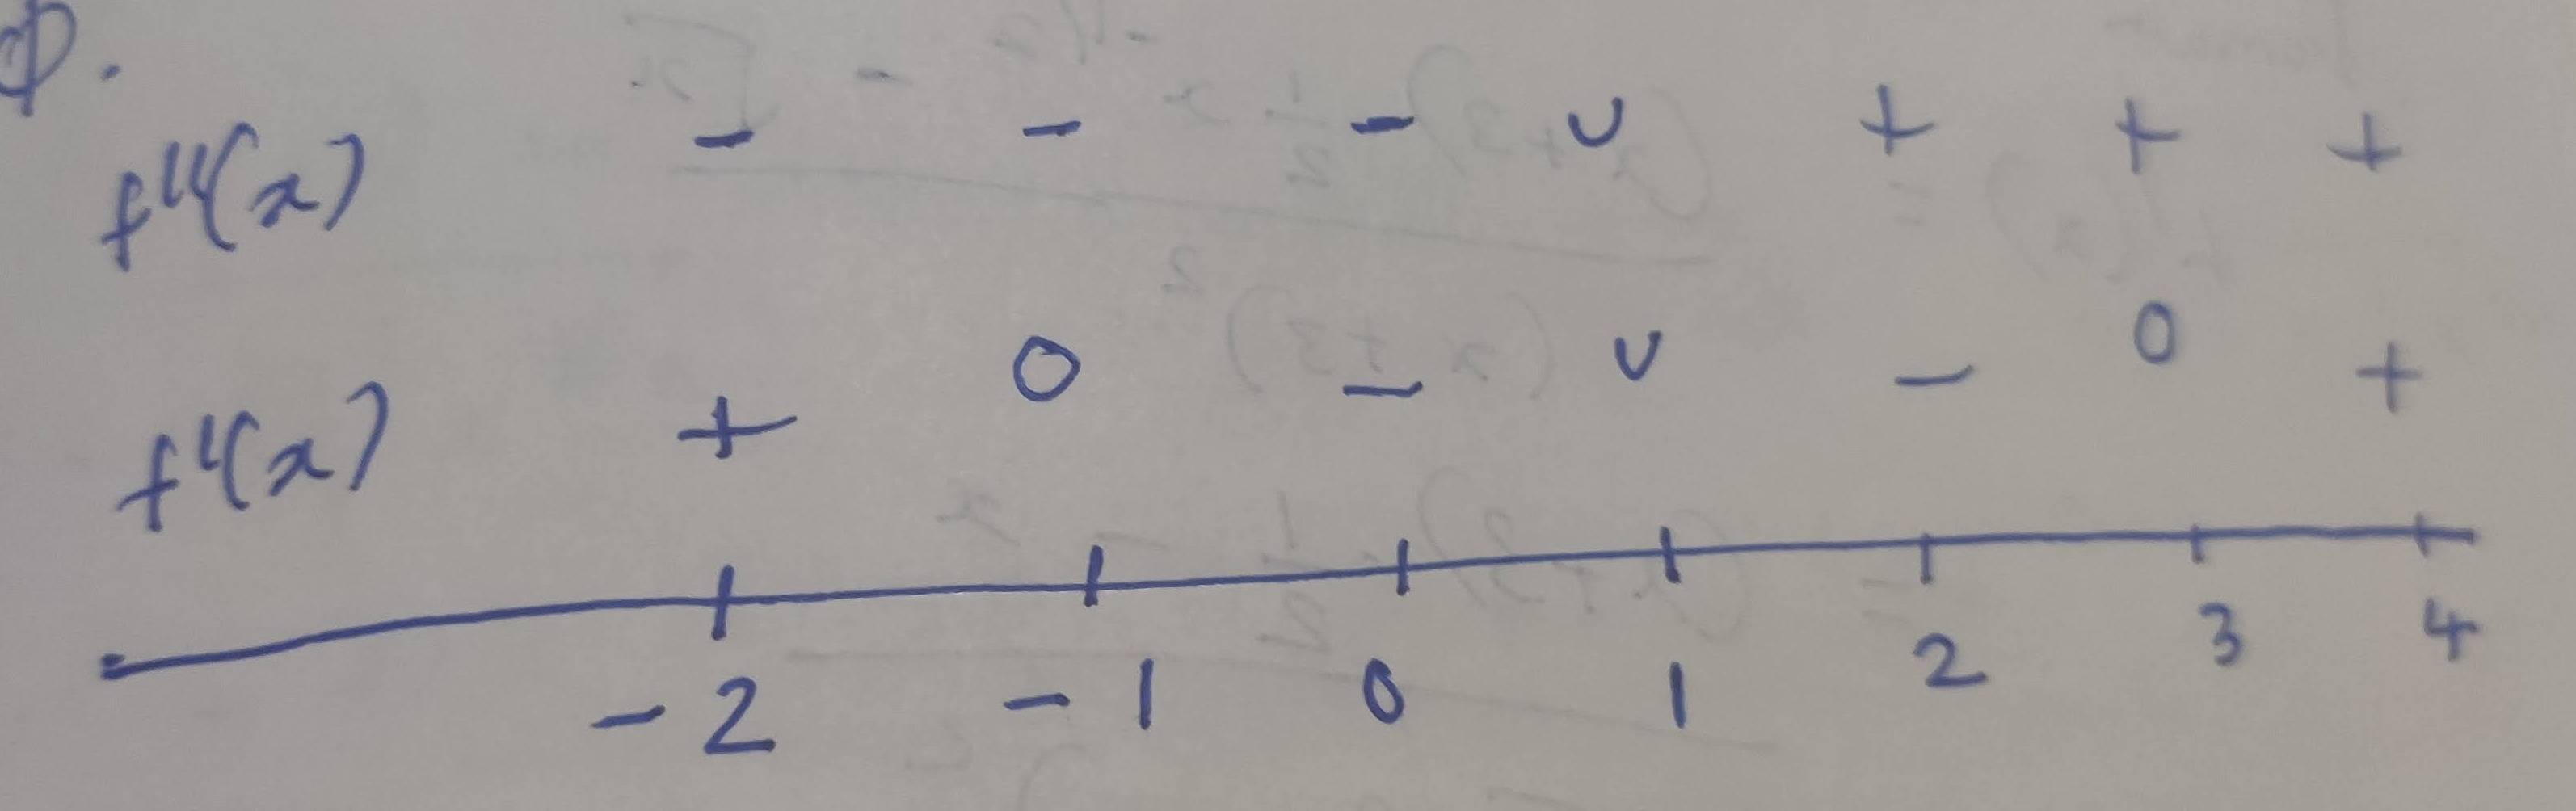 φ.
f''(x) - - - ∪ + + +
f'(x) + 0 - ∪ - 0 +
-2 -1 0 1 2 3 4